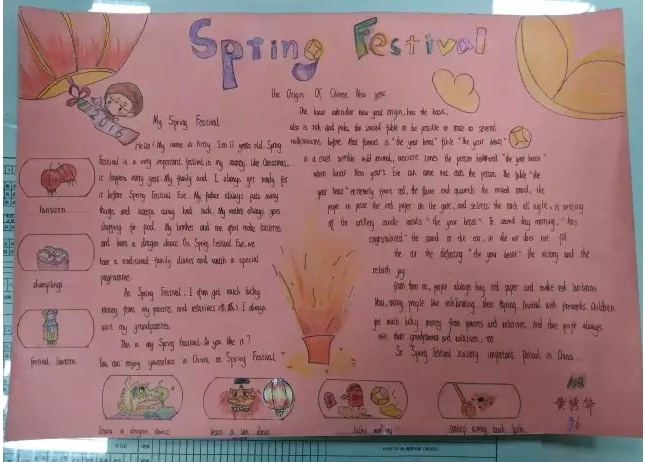 Spring Festival
2016
My Spring Festival
Hello! My name is Kitty. I'm 11 years old. Spring
Festival is a very important festival in my country. Like Christmas,
it happens every year. My family and I always get ready for
it before Spring Festival Eve. My father always puts away
things and sweeps away bad luck. My mother always goes
shopping for food. My brother and me often make lanterns
and learn a dragon dance. On Spring Festival Eve, we
have a traditional family dinner and watch a special
programme.
At Spring Festival, I often get much lucky
money from my parents and relatives I always
visit my grandparents.
This is my Spring Festival. Do you like it?
You can enjoy yourselves in China at Spring Festival
The Origin Of Chinese New year
The lunar calendar new year origin, has the
also is rich and the fable to be possible to trace to several
millenniums before. Most famous is "the year beast" fable "The year beast"
is a cruel wild animal, ancient times the person believed "the year beast"
when lunar New year's Eve can come out eats the person. The fable "the
year beast" extremely fears red, the flame and the sound, the
people on paste the red paper on the gate, and the all night, is setting
off the artillery candle "the year beast". To second day morning, "has
congratulated" the sound in the ear, in the air does not fill
the air the defeating "the year beast" the victory and the
rebirth joy
From then on, people always buy red paper and make red lanterns
Now, many people like celebrating their Spring Festival with fireworks. Children
get much lucky money from parents and relatives. And then people always
visit their grandparents and relatives, too
So Spring Festival is a very important festival in China.
lantern
dumplings
festival lantern
learn a dragon dance
learn a lion dance
lucky money
sweep away bad luck